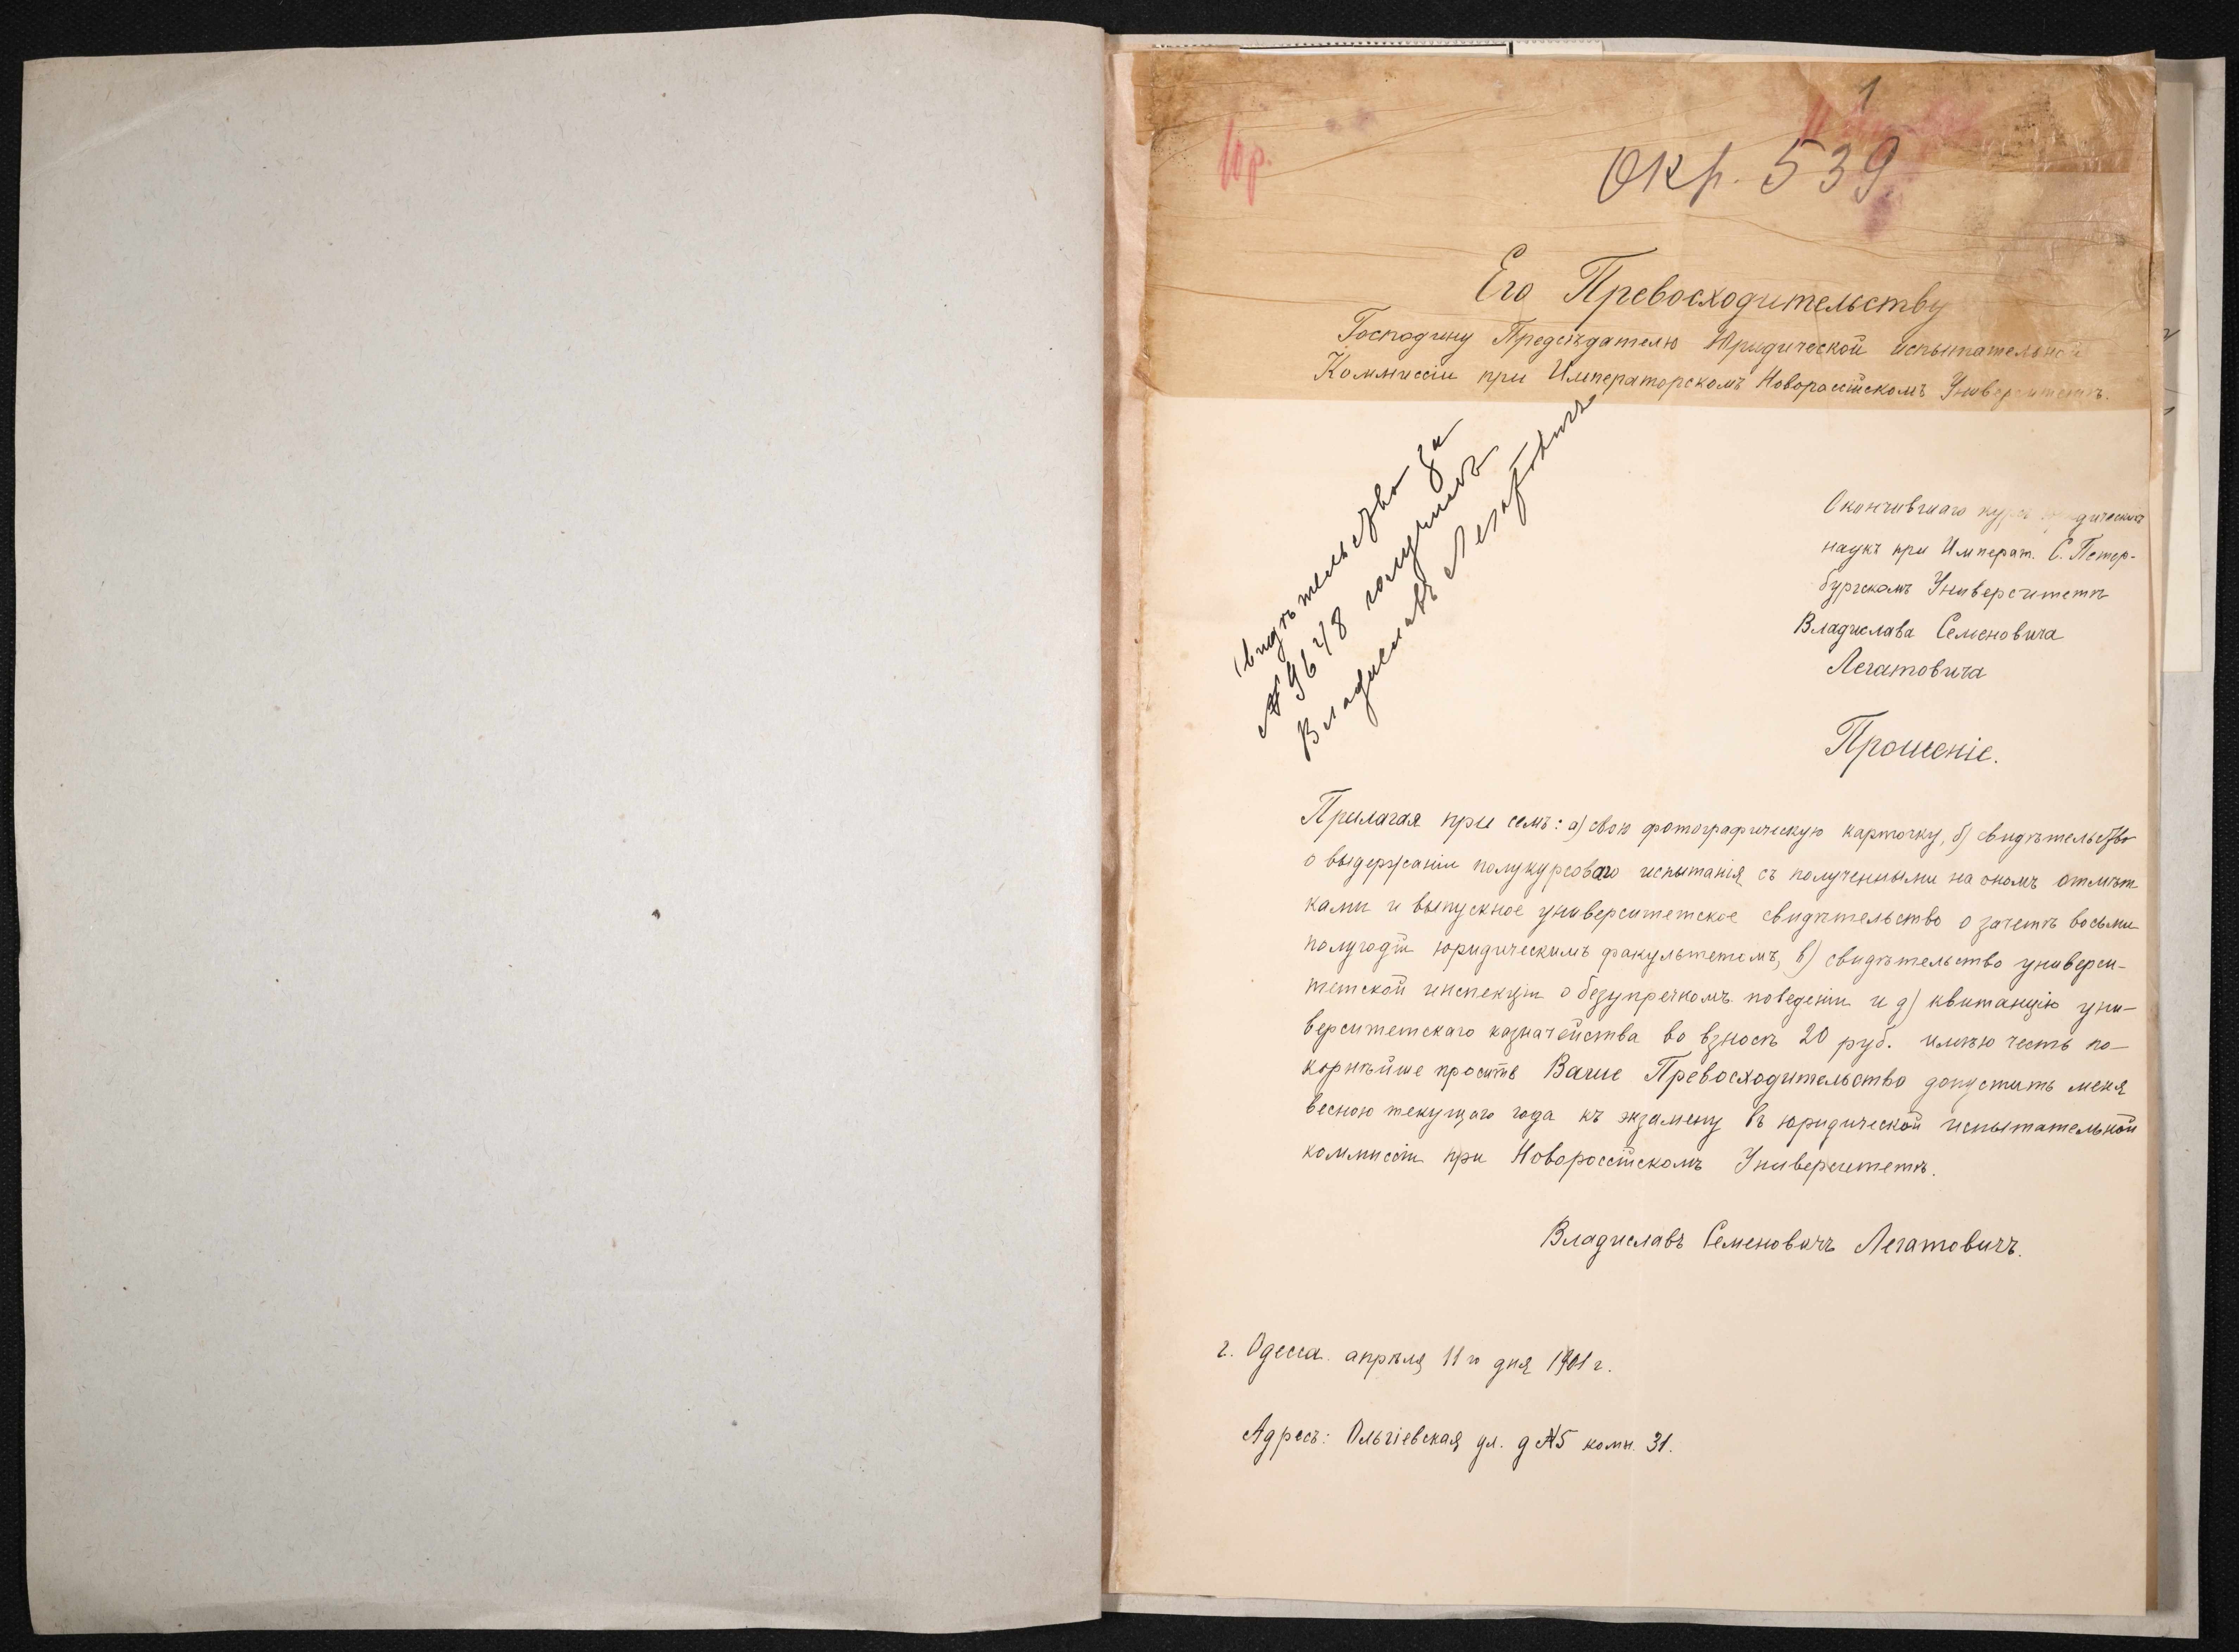 1
Юр.
Окр. 539
Его Превосходительству
Господину Предсѣдателю Юридической испытательной
Коммиссіи при Императорскомъ Новороссійскомъ Университетѣ.
Свидѣтельство за
№ 96248 получилъ
Владиславъ Легатовичъ
Окончившаго курсъ юридическихъ
наукъ при Императ. С. Петер-
бургскомъ Университетѣ
Владислава Семеновича
Легатовича
Прошеніе.
Прилагая при семъ: а) свою фотографическую карточку, б) свидѣтельство
о выдержаніи полукурсоваго испытанія съ полученными на ономъ отмѣт-
ками и выпускное университетское свидѣтельство о зачетѣ восьми
полугодій юридическимъ факультетомъ, в) свидѣтельство универси-
тетской инспекціи о безупречномъ поведеніи и д) квитанцію уни-
верситетскаго казначейства во взносѣ 20 руб. имѣю честь по-
корнѣйше просить Ваше Превосходительство допустить меня
весною текущаго года къ экзамену въ юридической испытательной
коммиссіи при Новороссійскомъ Университетѣ.
Владиславъ Семеновичъ Легатовичъ.
г. Одесса апрѣля 11го дня 1901 г.
Адресъ: Ольгіевская ул. д №5 комн. 31.